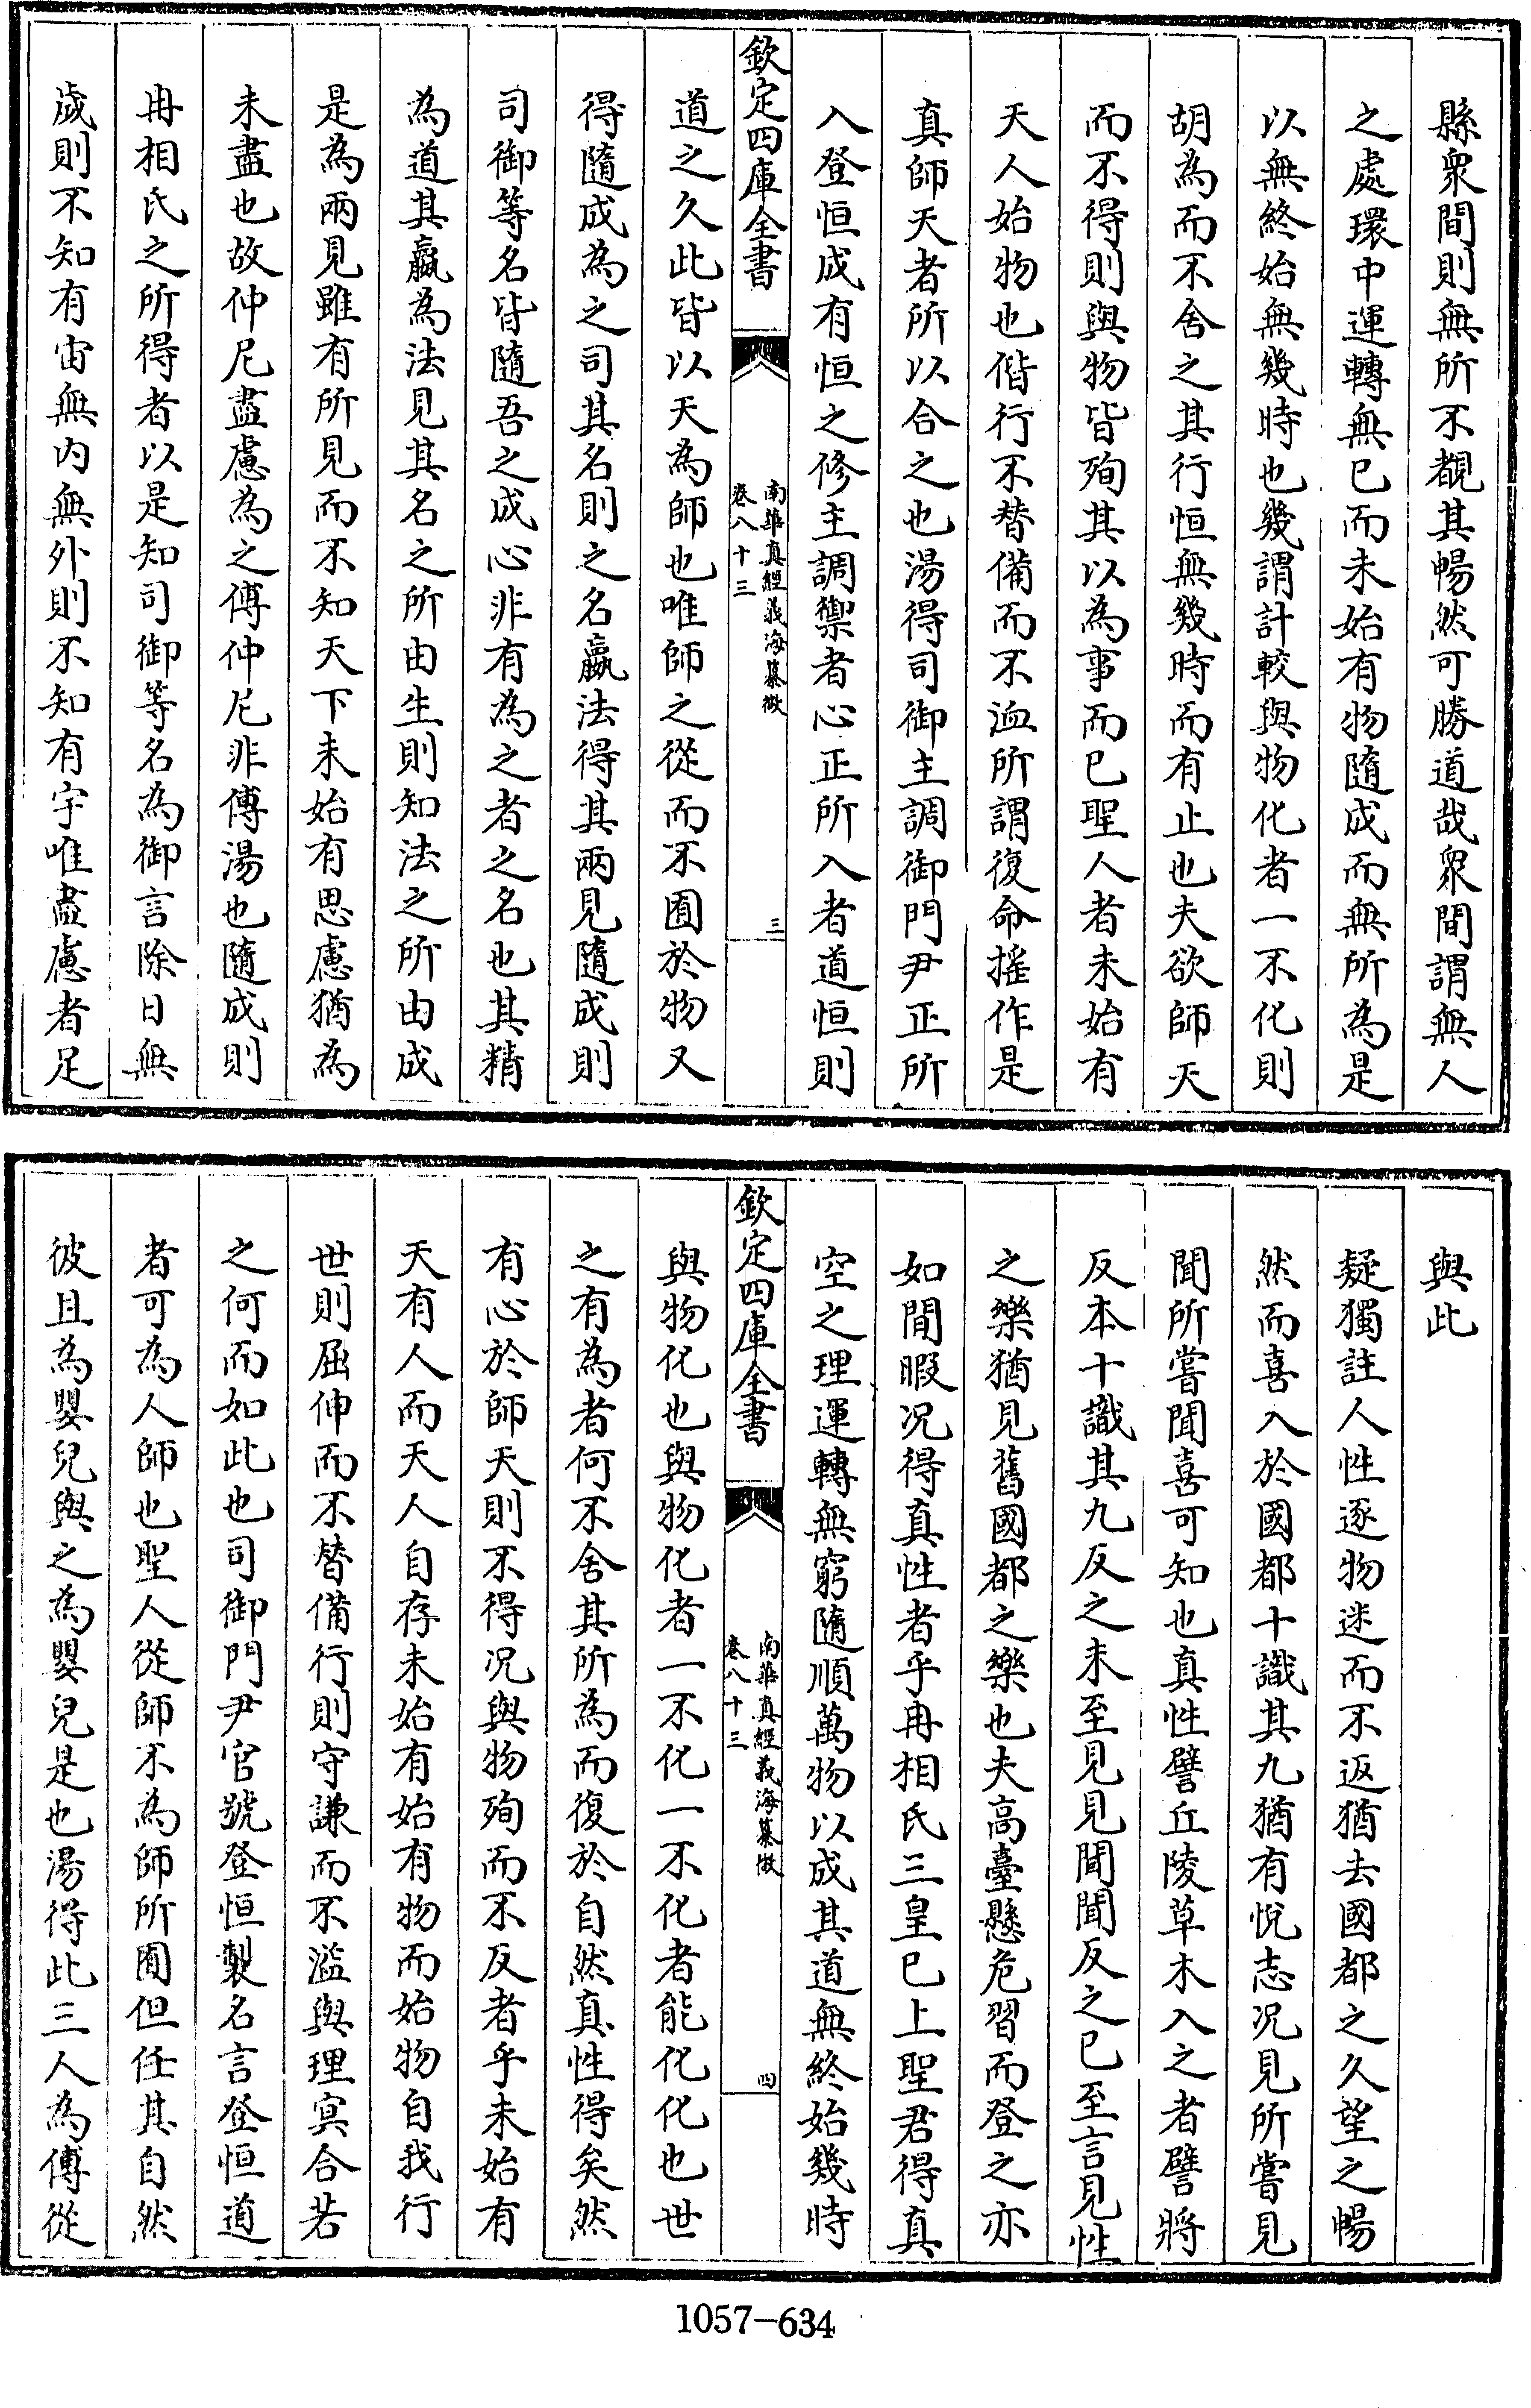 縣衆間則無所不覩其暢然可勝道哉衆間謂無人
之處環中運轉無已而未始有物隨成而無所為是
以無終始無幾時也幾謂計較與物化者一不化則
胡為而不舍之其行恒無幾時而有止也夫欲師天
而不得則與物皆殉其以為事而已聖人者未始有
天人始物也偕行不替備而不洫所謂復命搖作是
真師天者所以合之也湯得司御主調御門尹正所
入登恒成有恒之修主調禦者心正所入者道恒則
欽定四庫全書
南華真經義海纂微
卷八十三
三
道之久此皆以天為師也唯師之從而不囿於物又
得隨成為之司其名則之名嬴法得其兩見隨成則
司御等名皆隨吾之成心非有為之者之名也其精
為道其嬴為法見其名之所由生則知法之所由成
是為兩見雖有所見而不知天下未始有思慮猶為
未盡也故仲尼盡慮為之傅仲尼非傅湯也隨成則
冉相氏之所得者以是知司御等名為御言除日無
歲則不知有宙無内無外則不知有宇唯盡慮者足
與此
疑獨註人性逐物迷而不返猶去國都之久望之暢
然而喜入於國都十識其九猶有悅志况見所嘗見
聞所嘗聞喜可知也真性譬丘陵草木入之者譬將
反本十識其九反之未至見見聞聞反之已至言見性
之樂猶見舊國都之樂也夫高臺懸危習而登之亦
如間暇况得真性者乎冉相氏三皇已上聖君得真
空之理運轉無窮隨順萬物以成其道無終始幾時
欽定四庫全書
南華真經義海纂微
卷八十三
四
與物化也與物化者一不化一不化者能化化也世
之有為者何不舍其所為而復於自然真性得矣然
有心於師天則不得况與物殉而不反者乎未始有
天有人而天人自存未始有始有物而始物自我行
世則屈伸而不替備行則守謙而不濫與理冥合若
之何而如此也司御門尹官號登恒製名言登恒道
者可為人師也聖人從師不為師所囿但任其自然
彼且為嬰兒與之為嬰兒是也湯得此三人為傅從
1057-634